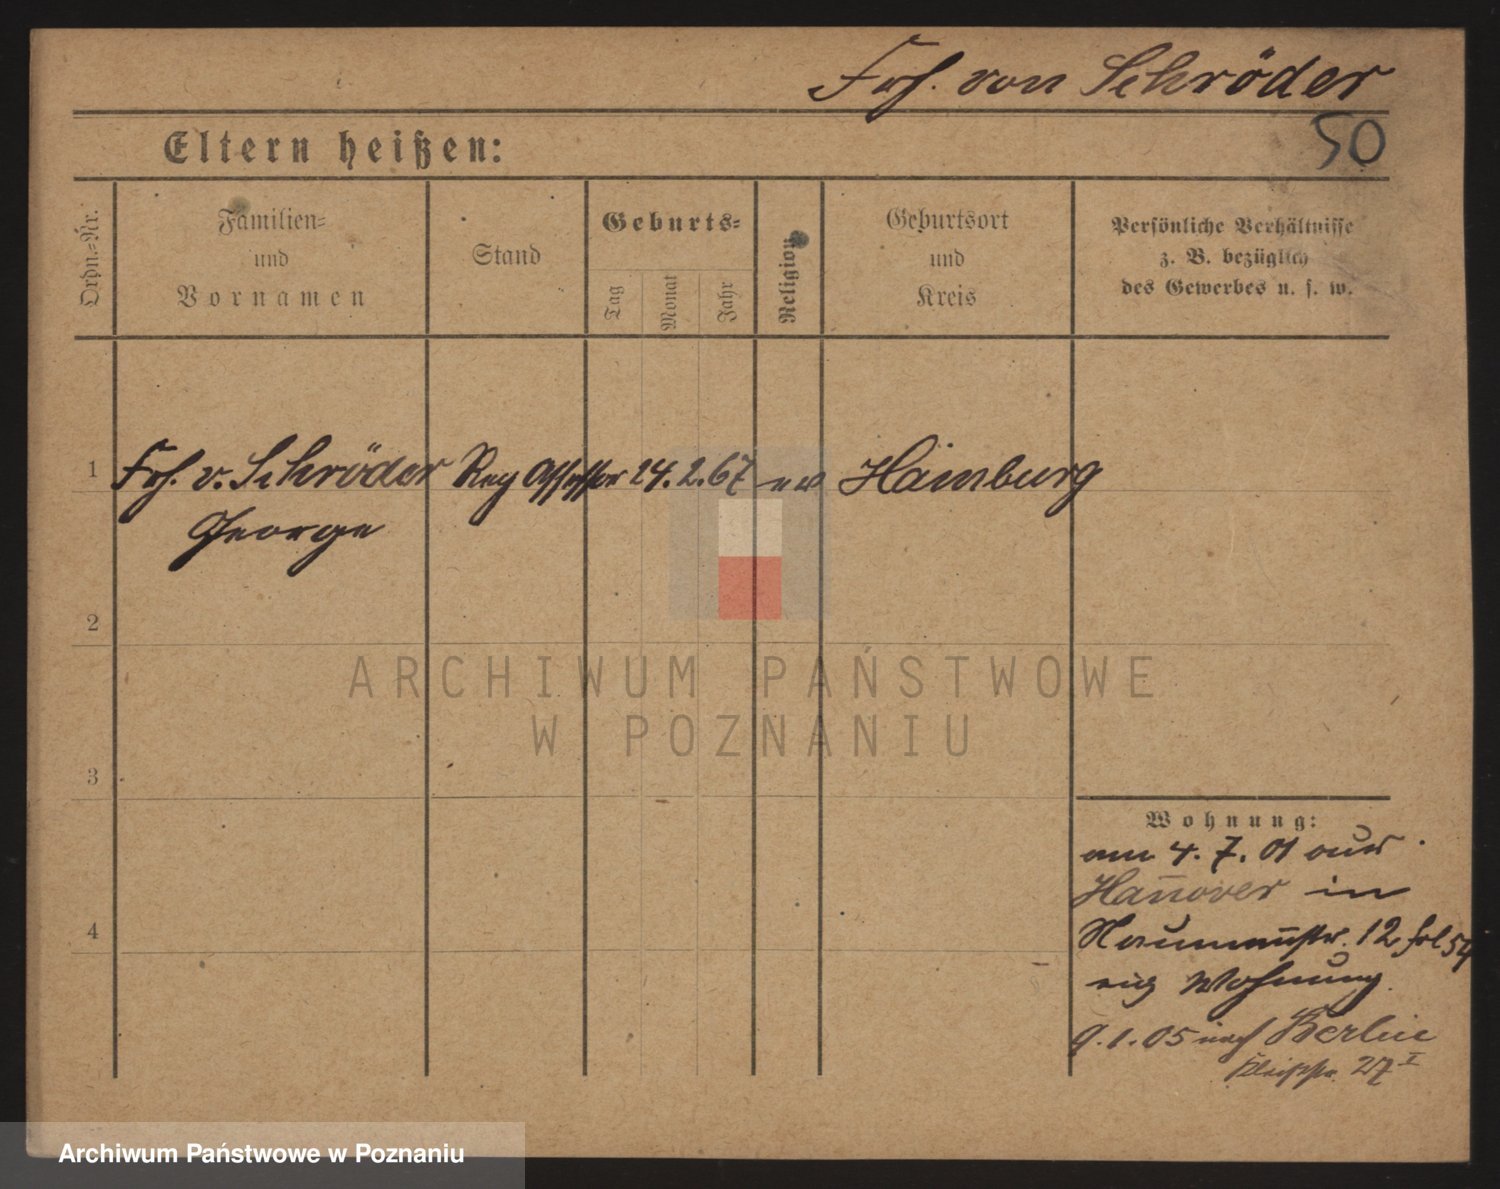 Frh. von Schröder
50
Eltern heißen:
Ordn.-Nr.
Familien-
und
Vornamen
Stand
Geburts-
Tag
Monat
Jahr
Religion
Geburtsort
und
Kreis
Persönliche Verhältnisse
z. B. bezüglich
des Gewerbes u. s. w.
1 Frh. v. Schröder Reg Assessor 24. 2. 67 ev Hamburg
George
2
3
4
Wohnung:
am 4. 7. 01 aus
Han̄over in
Naumannstr. 12 bei 54
eig Wohnung.
9. 1. 05 nach Berlin
Kleiststr. 27 I
ARCHIWUM PAŃSTWOWE
W POZNANIU
Archiwum Państwowe w Poznaniu